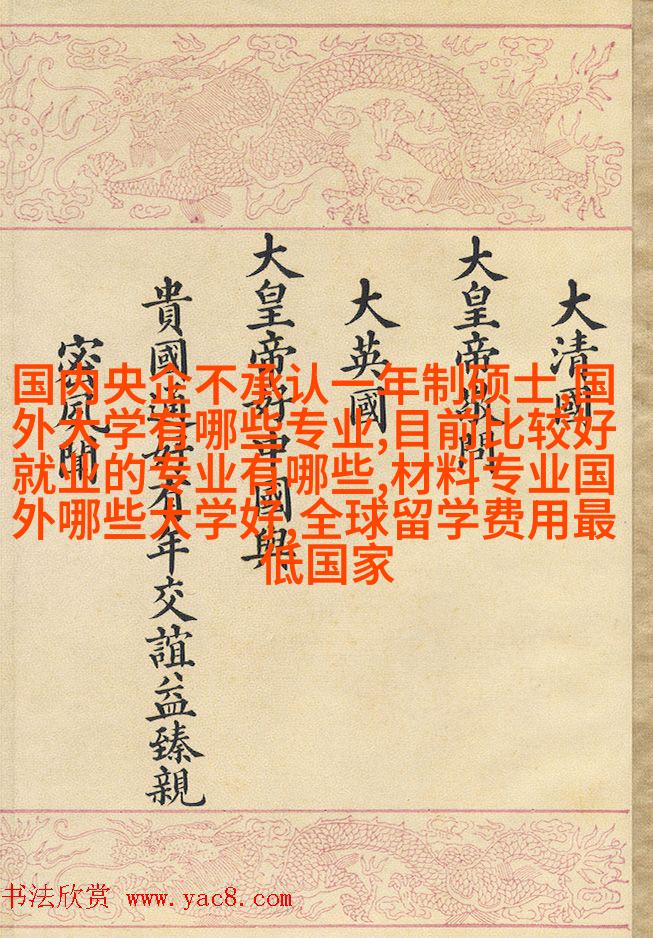 大清國
大皇帝敬問
大英國
大皇帝好中國與
貴國通好有年交誼益臻親
密夙聞
国内央企不承认一年制硕士,国
外大学有哪些专业,目前比较好
就业的专业有哪些,材料专业国
外哪些大学好,全球留学费用最
低国家
书法欣赏 www.yac8.com